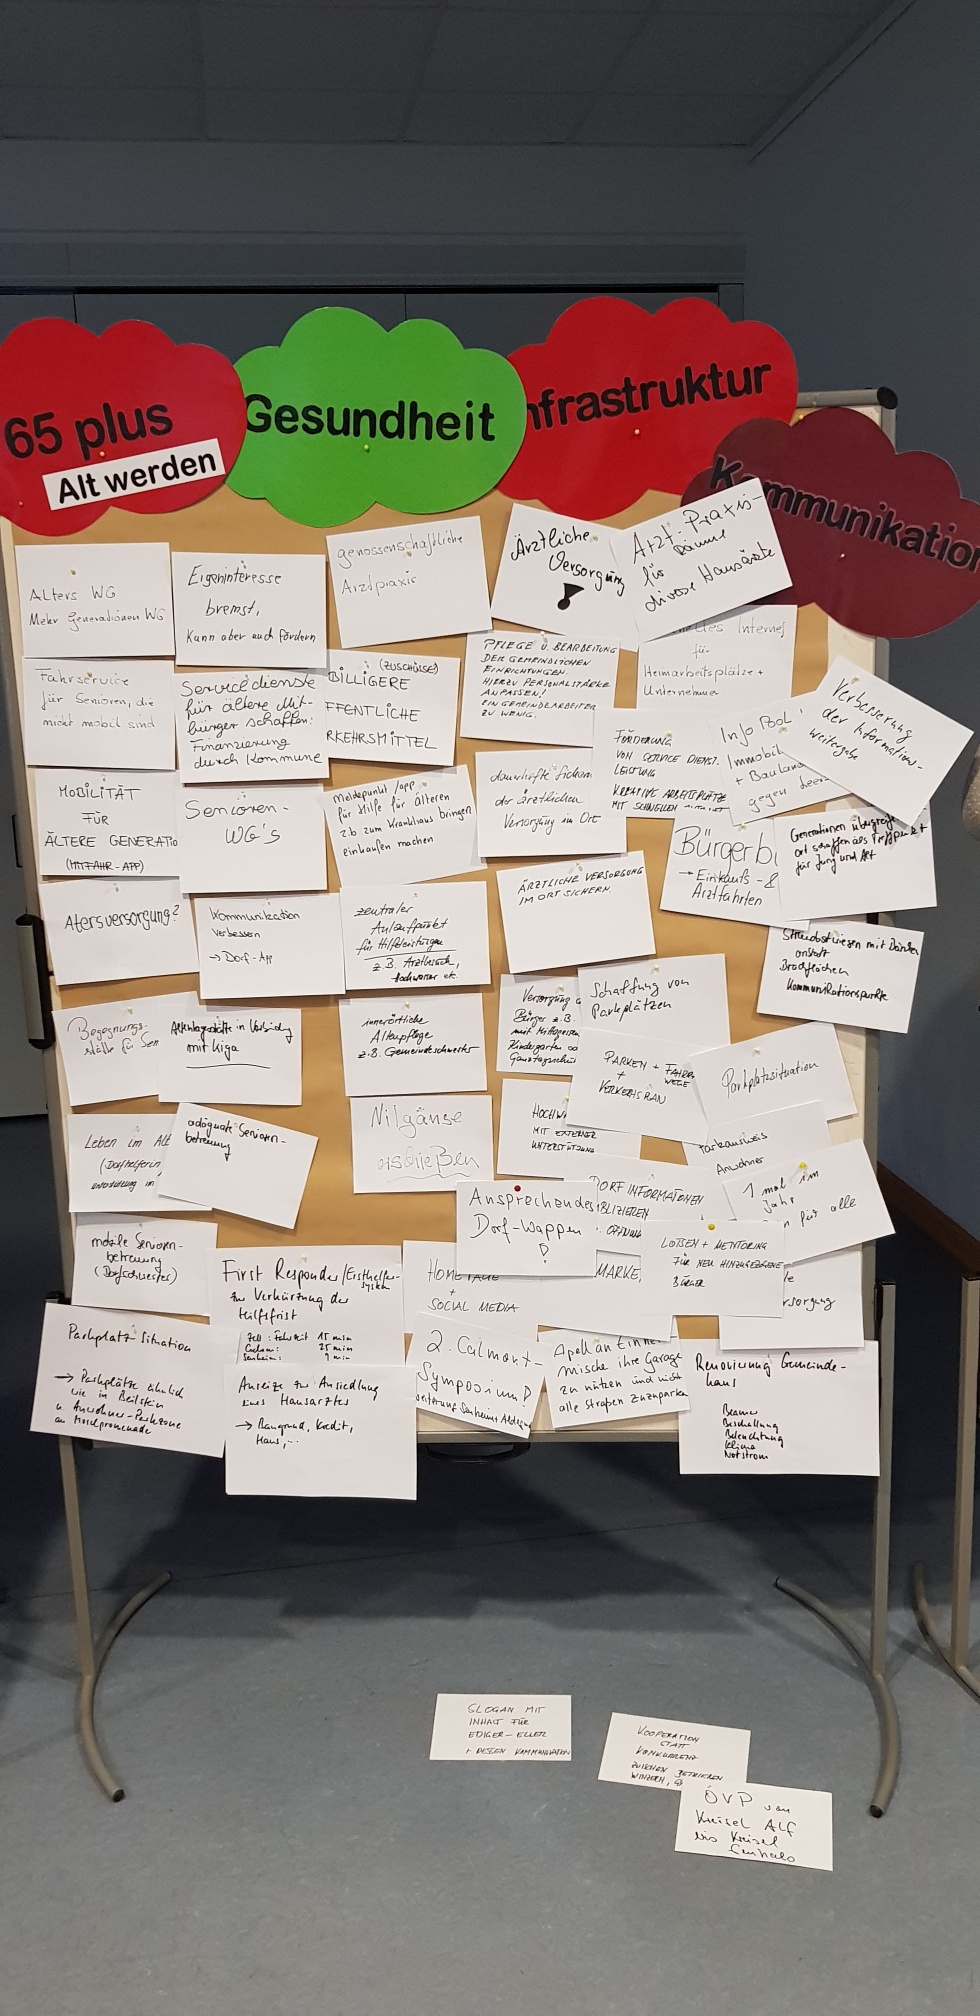 65 plus
Alt werden
Gesundheit
nfrastruktur
Kommunikation
Alters WG
Mehr Generationen WG
Eigeninteresse
bremst,
Kann aber auch fördern
genossenschaftliche
Arztpraxis
Ärztliche
Versorgung
!
Arzt-Praxis-
Räume
für
diverse Hausärzte
Fahrservice
für Senioren, die
nicht mobil sind
Servicedienste
für ältere Mit-
bürger schaffen:
Finanzierung
durch Kommune
(ZUSCHÜSSE)
BILLIGERE
FFENTLICHE
RKEHRSMITTEL
PFLEGE U. BEARBEITUNG
DER GEMEINDLICHEN
EINRICHTUNGEN.
HIERZU PERSONALSTÄRKE
ANPASSEN!
EIN GEMEINDEARBEITER
ZU WENIG.
Internet
für
Heimarbeitsplätze +
Unternehmer
Verbesserung
der Information-
weitergabe
MOBILITÄT
FÜR
ÄLTERE GENERATIO
(MITFAHR-APP)
Senioren-
WG's
Meldepunkt/app
für Hilfe für Älteren
z.b zum Krankhaus bringen
einkaufen machen
dauerhafte Sichern
der ärztlichen
Versorgung im Ort
FÖRDERUNG
VON SERVICE DIENST-
LEISTUNG
KREATIVE ARBEITSPLÄTZE
MIT SCHNELLEM
Info Pool
Immobil
+ Bauland
gegen Leer
Atersversorgung?
Kommunikation
verbessern
→ Dorf-App
zentraler
Anlaufpunkt
für Hilfeleistungen
z.B. Arztbesuch,
Hochwasser etc.
ÄRZTLICHE VERSORGUNG
IM ORT SICHERN.
Bürgerb
→ Einkaufs- &
Arztfahrten
Generationen übergreife
ort schaffen als Treffpunkt
für Jung und Alt
Streuobstwiesen mit Bänken
anstatt
Brachflächen
Kommunikationspunkte
Begegnungs-
stätte für Sen
mit Kiga
innerörtliche
Altenpflege
z.B. Gemeindeschwester
Versorgung
Bürger z.B.
mit Mittagessen
Kindergarten
Ganztagsschul
Schaffung von
Parkplätzen
PARKEN + FAHRR
WEGE
+
VERKEHRSRAN
Parkplatzsituation
Leben im Alt
(Dorfhelferin
Unterstützung im
adäquate Senioren-
betreuung
Nilgänse
erschießen
HOCHW
MIT EXTERNER
UNTERSTÜTZUNG
Parkausweis
Anwohner
1 mal im
Jahr
für alle
mobile Senioren-
betreuung
(Dorfschwester)
Ansprechendes
Dorf-Wappen
!
DORF INFORMATIONEN
BLIZIEREN
LOTSEN + MENTORING
FÜR NEU HINZUGEZOGENE
BÜRGER
rsorgung
First Responder/Ersthelfer-
system
zur Verkürzung der
Hilfsfrist
Zell: Fahrzeit 15 min
Cochem: 25 min
Senheim: 9 min
HOMEPAGE
+
SOCIAL MEDIA
MARKE,
Parkplatz Situation
→ Parkplätze ähnlich
wie in Beilstein
u. Anwohner-Parkzone
an Moselpromenade
Anreize zur Ansiedlung
eines Hausarztes
→ Baugrund, Kredit,
Haus,...
2. Calmont-
Symposium!
Apell an Einhei-
mische ihre Garage
zu nützen und nicht
alle Straßen zuzuparken
Renovierung Gemeinde-
haus
Beamer
Beschallung
Beleuchtung
Klima
Notstrom
SLOGAN MIT
INHALT FÜR
EDIGER-ELLER
+ DESSEN KOMMUNIKATION
KOOPERATION
STATT
KONKURRENZ
ZWISCHEN BETRIEBEN
WINZERN,
ÖVP von
Kreisel Alf
bis Kreisel